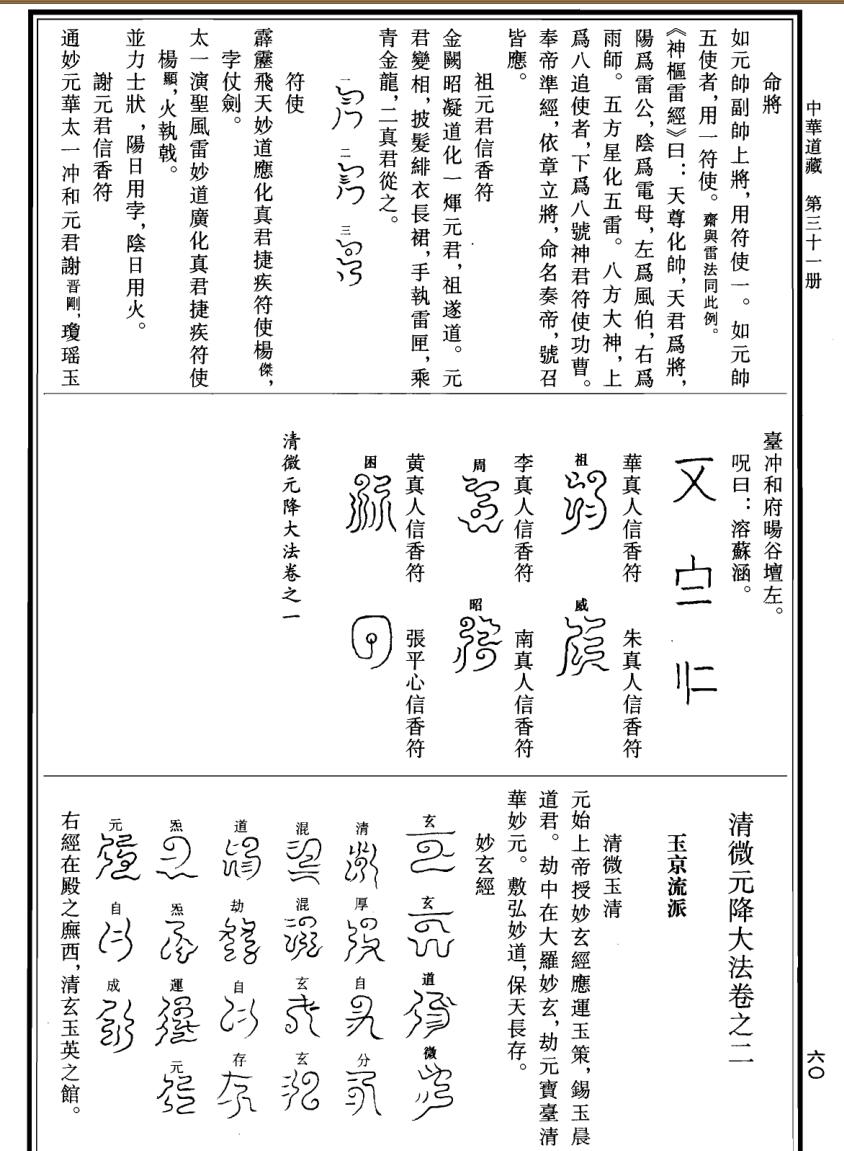 中華道藏　第三十一册
命將
如元帥副帥上將，用符使一。如元帥
五使者，用一符使。齋與雷法同此例。
《神樞雷經》曰：天尊化帥，天君爲將，
陽爲雷公，陰爲電母，左爲風伯，右爲
雨師。五方星化五雷。八方大神，上
爲八追使者，下爲八號神君符使功曹。
奉帝準經，依章立將，命名奏帝，號召
皆應。
祖元君信香符
金闕昭凝道化一煇元君，祖遂道。元
君變相，披髮緋衣長裙，手執雷匣，乘
青金龍，二真君從之。
一　二　三
符使
霹靂飛天妙道應化真君捷疾符使楊傑，
孛仗劍。
太一演聖風雷妙道廣化真君捷疾符使
楊顯，火執戟。
並力士狀，陽日用孛，陰日用火。
謝元君信香符
通妙元華太一冲和元君謝晋剛，瓊瑤玉
臺冲和府暘谷壇左。
呪曰：溶蘇涵。
華真人信香符　朱真人信香符
祖　威
李真人信香符　南真人信香符
周　昭
黄真人信香符　張平心信香符
困
清微元降大法卷之一
清微元降大法卷之二
玉京流派
清微玉清
元始上帝授妙玄經應運玉策，錫玉晨
道君。劫中在大羅妙玄，劫元寶臺清
華妙元。敷弘妙道，保天長存。
妙玄經
玄　玄　道　微
清　厚　自　分
混　混　玄　玄
道　劫　自　存
炁　炁　運　元
元　自　成
右經在殿之廡西，清玄玉英之館。
六〇